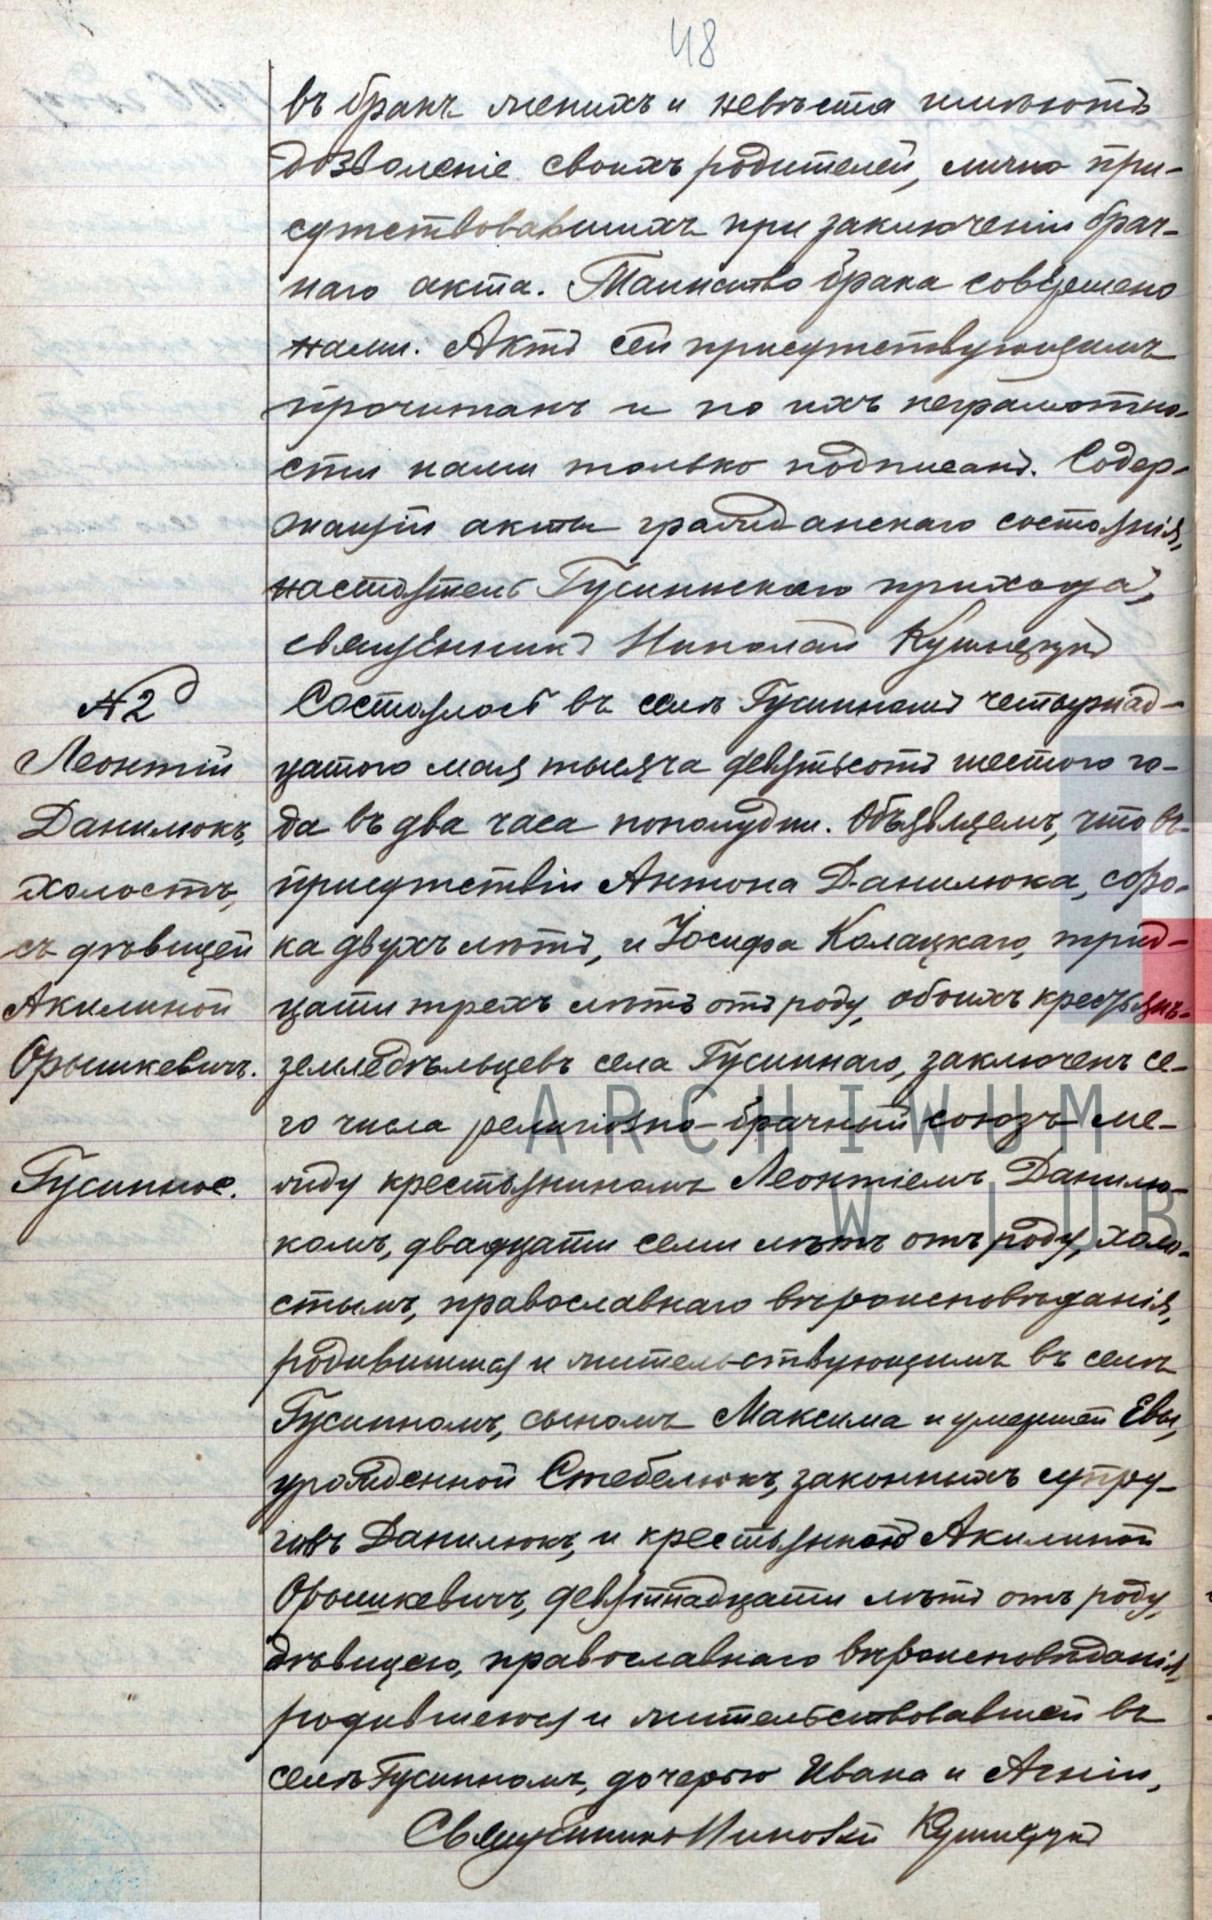 48
въ бракъ женихъ и невѣста имѣютъ
дозволеніе своихъ родителей, лично при-
сутствовавшихъ при заключеніи брач-
наго акта. Таинство брака совершено
нами. Актъ сей присутствующимъ
прочитанъ и по ихъ неграмотно-
сти нами только подписанъ. Содер-
жащій акты гражданскаго состоянія,
настоятель Гусиннскаго прихода,
священникъ Николай
№ 2
Леонтій
Данилюкъ,
холостъ,
съ дѣвицей
Акилиной
Орышкевичъ.
Гусинное.
Состоялось въ селѣ Гусинномъ четырнад-
цатого мая тысяча девятьсотъ шестого го-
да въ два часа пополудни. Объявляемъ, что въ
присутствіи Антона Данилюка, соро-
ка двухъ лѣтъ, и Іосифа Колацкаго, трид-
цати трехъ лѣтъ отъ роду, обоихъ крестьянъ-
земледѣльцевъ села Гусиннаго, заключенъ се-
го числа религіозно-брачный союзъ ме-
жду крестьяниномъ Леонтіемъ Данилю-
комъ, двадцати семи лѣтъ отъ роду, холо-
стымъ, православнаго вѣроисповѣданія,
родившимся и жительствующимъ въ селѣ
Гусинномъ, сыномъ Максима и умершей Евы,
урожденной Стебелюкъ, законныхъ супру-
говъ Данилюкъ, и крестьянкою Акилиной
Орышкевичъ, девятнадцати лѣтъ отъ роду,
дѣвицею, православнаго вѣроисповѣданія,
родившеюся и жительствовавшей въ
селѣ Гусинномъ, дочерью Ивана и Агніи,
Священникъ Николай
ARCHIWUM
W LUB